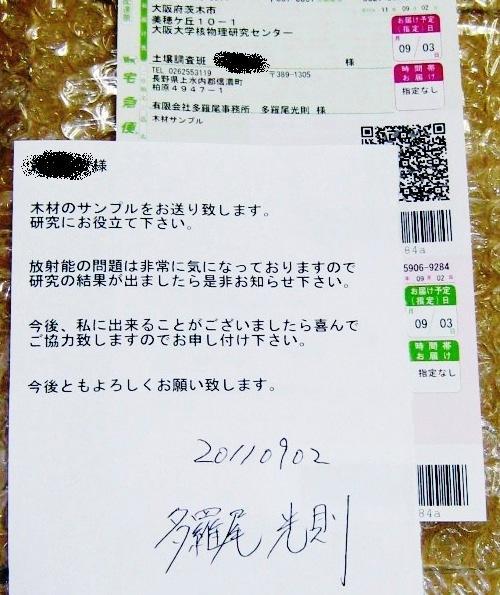 大阪府茨木市
美穂ケ丘10-1
大阪大学核物理研究センター
土壌調査班
様
TEL 0262553119
〒389-1305
長野県上水内郡信濃町
柏原4947-1
有限会社多羅尾事務所 多羅尾光則 様
木材サンプル
11 年 09 月 02 日
お届け予定
(指定)日
月 日
09 03
時間帯
お届け
指定なし
宅急便
84a
5906-9284
年 09 月 02 日
お届け予定
(指定)日
09 03
時間帯
お届け
指定なし
84a
様
木材のサンプルをお送り致します。
研究にお役立て下さい。
放射能の問題は非常に気になっておりますので
研究の結果が出ましたら是非お知らせ下さい。
今後、私に出来ることがございましたら喜んで
ご協力致しますのでお申し付け下さい。
今後ともよろしくお願い致します。
20110902
多羅尾 光則